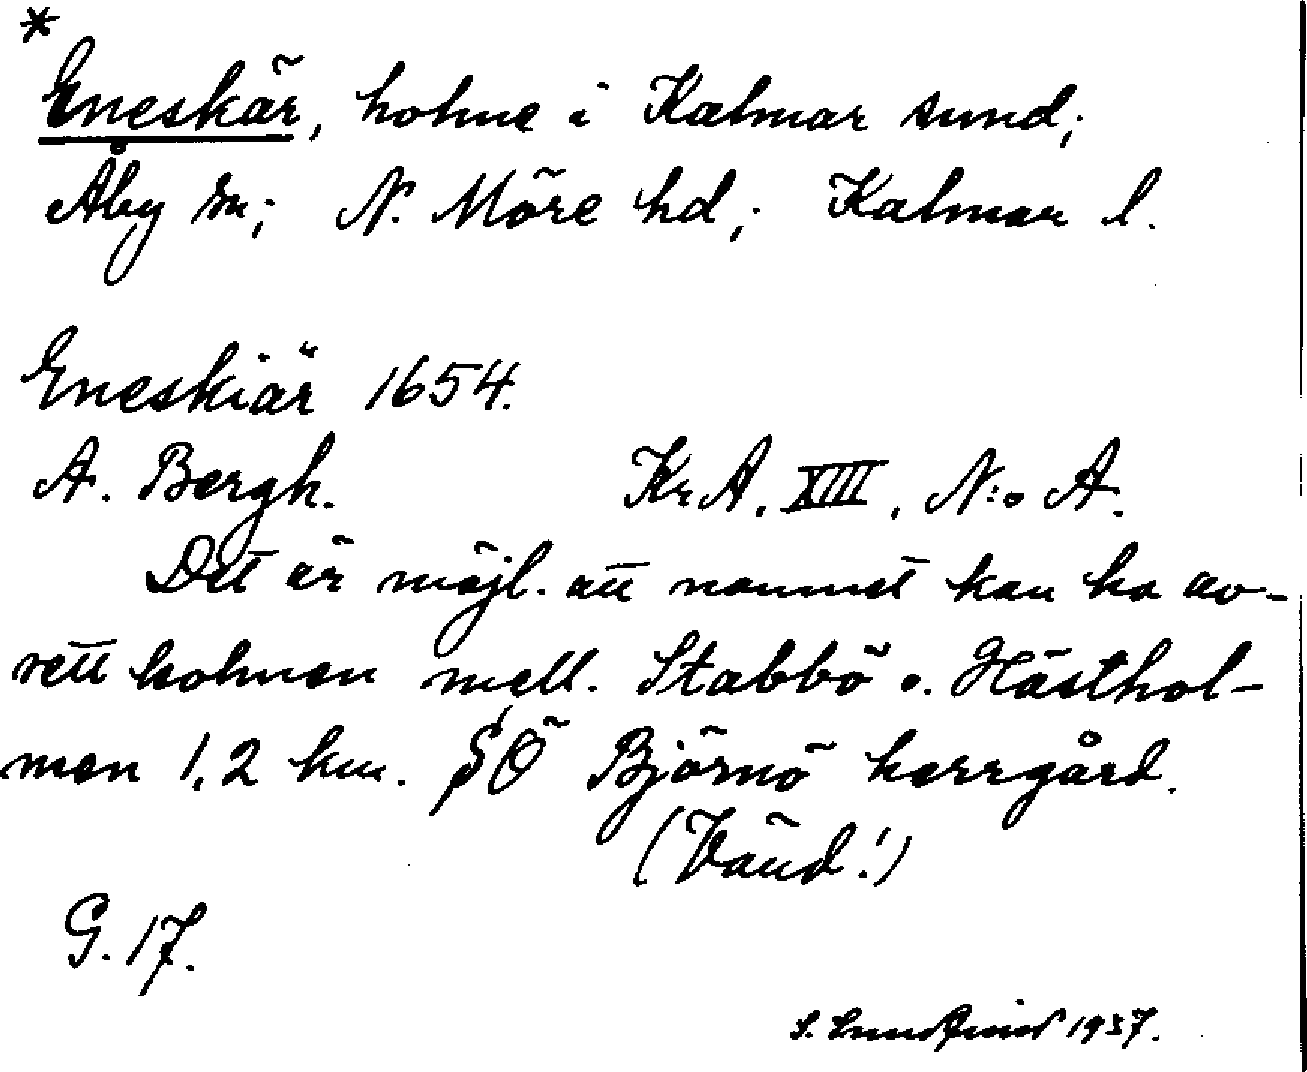 *
Eneskär, holme i Kalmar sund;
Åby sn; N. Möre hd; Kalmar l.
Eneskiär 1654.
A. Bergh. Kr.A. XIII, N:o A.
Det är möjl. att namnet kan ha av-
sett holmen mell. Stabbö o. Hästhol-
men 1,2 km. SÖ Björnö herrgård.
(Vänd!)
G. 17.
S. 1937.